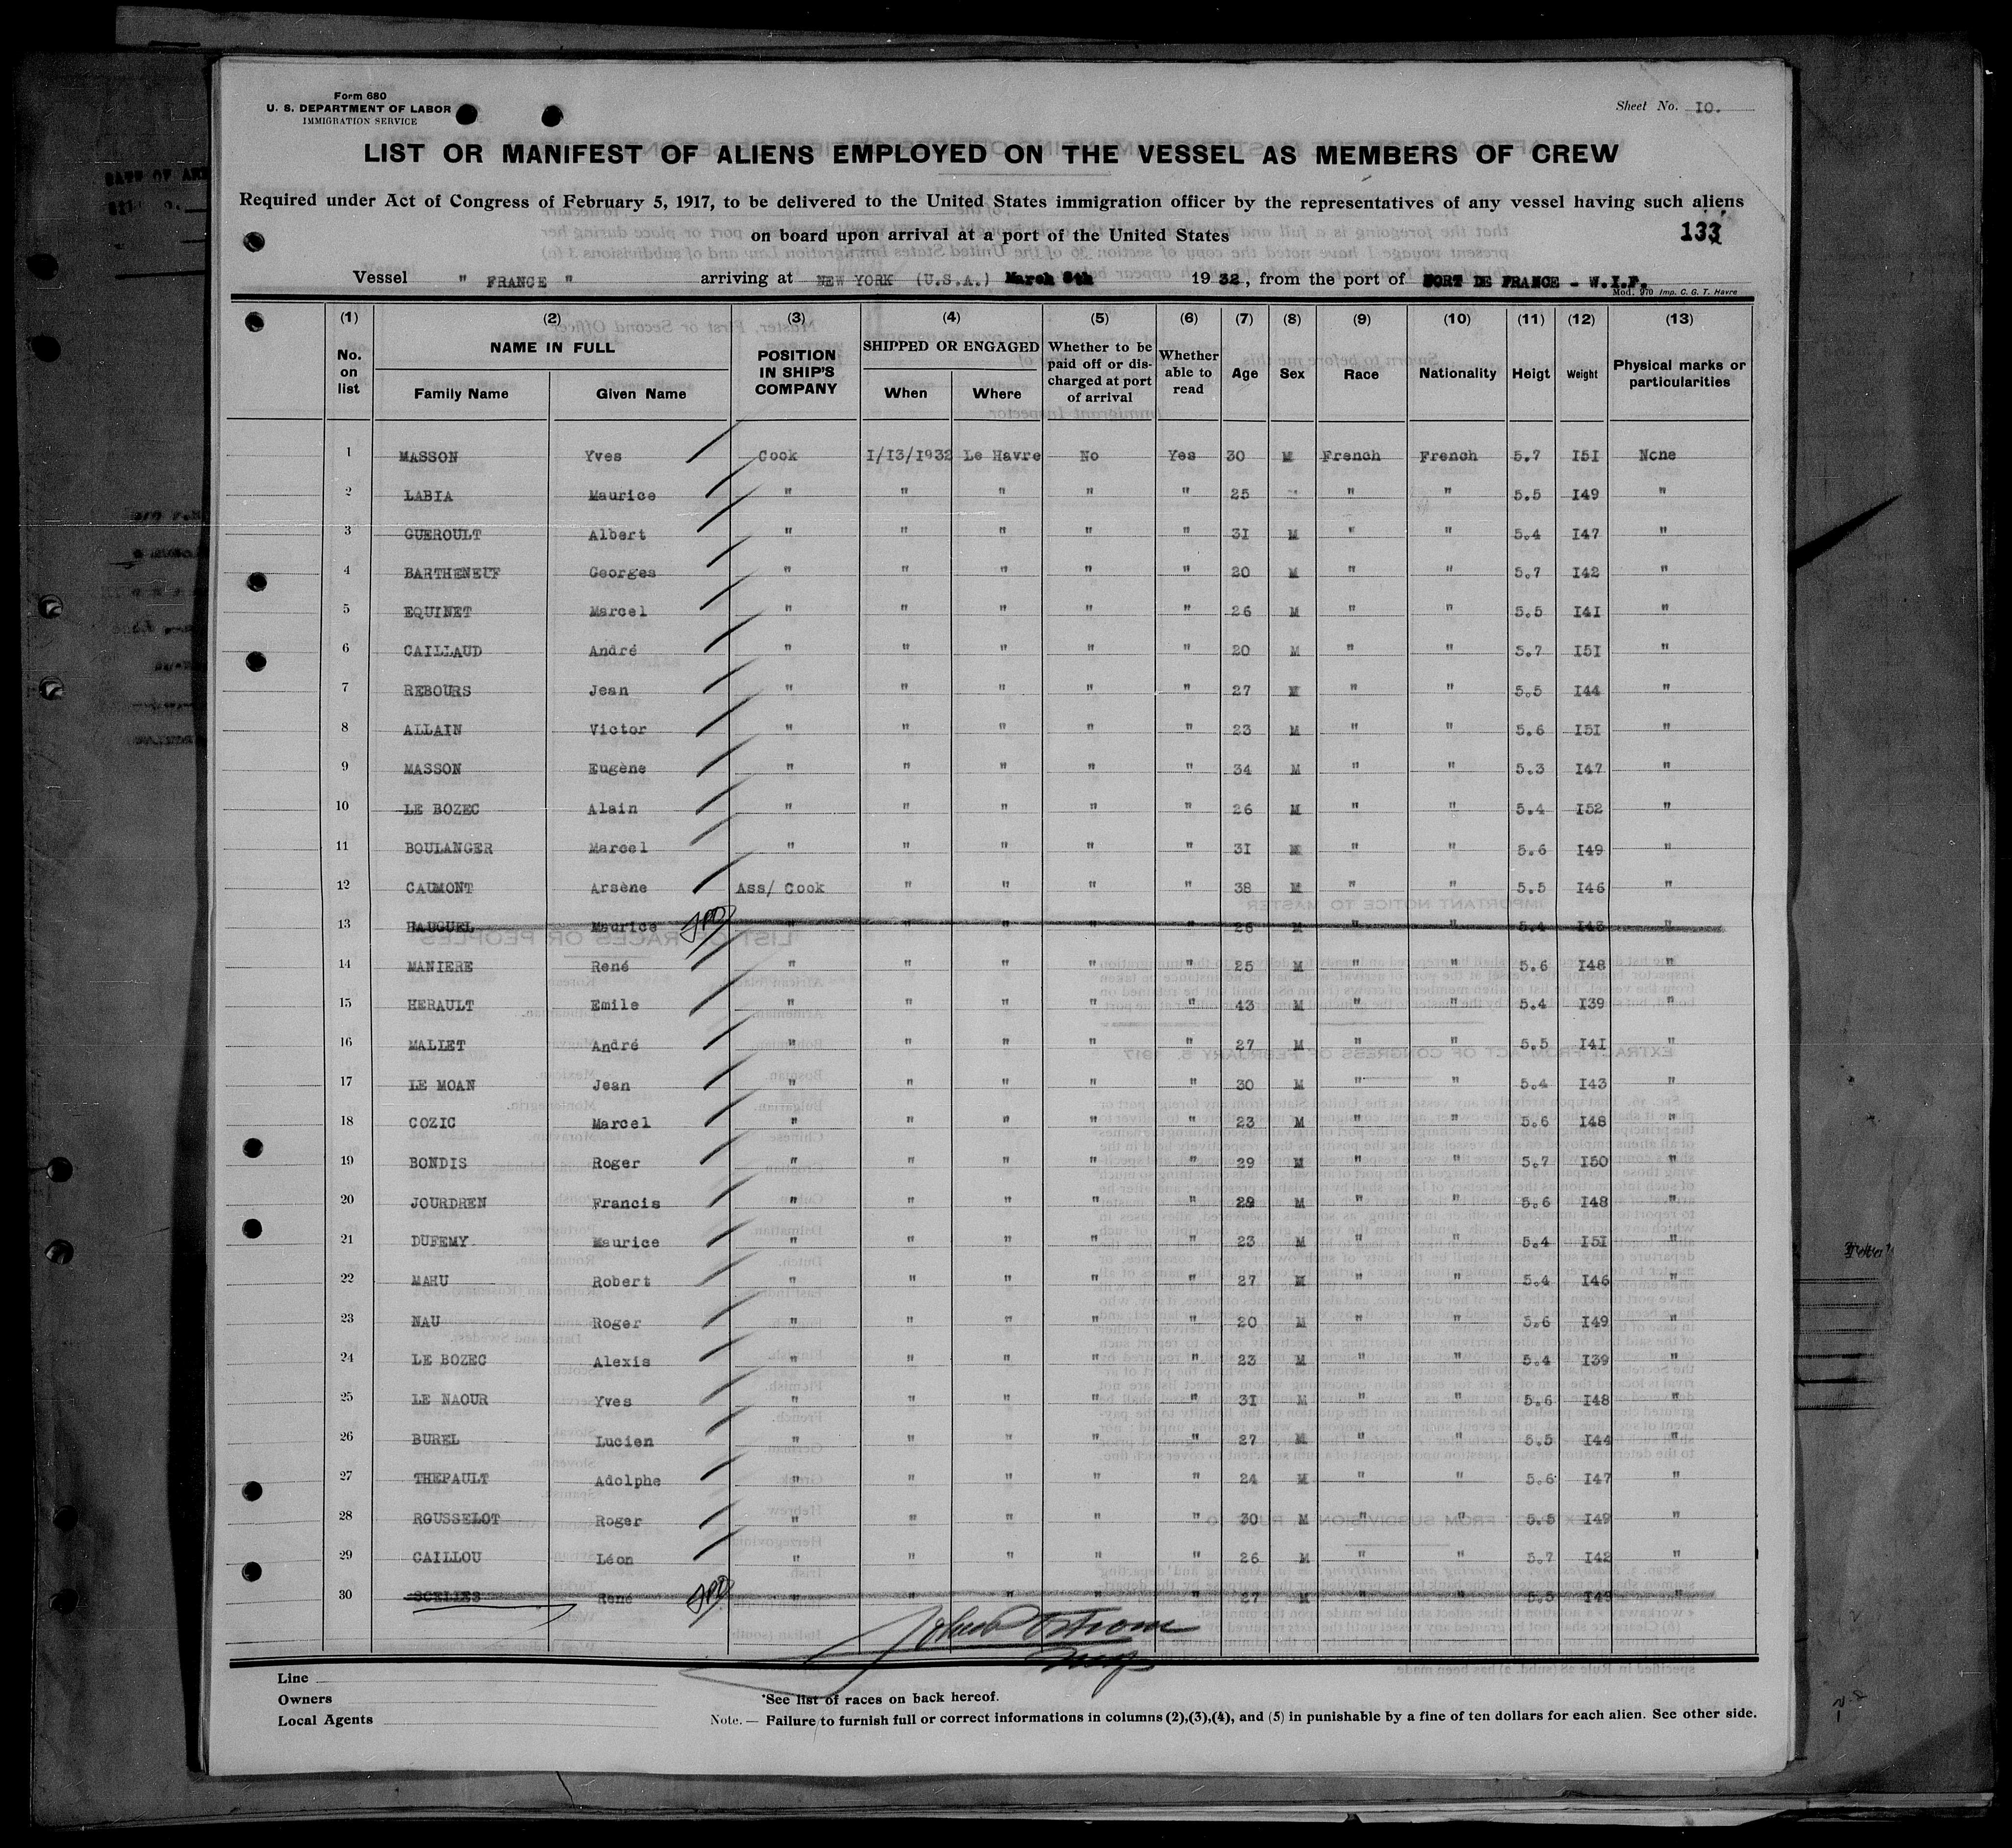 Form 680
U. S. DEPARTMENT OF LABOR
IMMIGRATION SERVICE
Sheet No. I0.
LIST OR MANIFEST OF ALIENS EMPLOYED ON THE VESSEL AS MEMBERS OF CREW
Required under Act of Congress of February 5, 1917, to be delivered to the United States immigration officer by the representatives of any vessel having such aliens
on board upon arrival at a port of the United States
133
Vessel " FRANCE " arriving at NEW YORK (U.S.A.) March 1932, from the port of FORT DE FRANCE - W.I.F.
Mod. 970 Imp. C. G. T. Havre
(1) (2) (3) (4) (5) (6) (7) (8) (9) (10) (11) (12) (13)
No. on list NAME IN FULL Family Name Given Name POSITION IN SHIP'S COMPANY SHIPPED OR ENGAGED When Where Whether to be paid off or discharged at port of arrival Whether able to read Age Sex Race Nationality Heigt Weight Physical marks or particularities
1 MASSON Yves Cook I/I3/I932 Le Havre No Yes 30 M French French 5.7 I5I None
2 LABIA Maurice " " " " " 25 " " " 5.5 I49 "
3 GUEROULT Albert " " " " " 3I M " " 5.4 I47 "
4 BARTHENEUF Georges " " " " " 20 M " " 5.7 I42 "
5 EQUINET Marcel " " " " " 26 M " " 5.5 I4I "
6 CAILLAUD André " " " " " 20 M " " 5.7 I5I "
7 REBOURS Jean " " " " " 27 M " " 5.5 I44 "
8 ALLAIN Victor " " " " " 23 M " " 5.6 I5I "
9 MASSON Eugène " " " " " 34 M " " 5.3 I47 "
10 LE BOZEC Alain " " " " " 26 M " " 5.4 I52 "
11 BOULANGER Marcel " " " " " 3I M " " 5.6 I49 "
12 CAUMONT Arsène Ass/ Cook " " " " 38 M " " 5.5 I46 "
13 HAUGUEL Maurice " " " " " 26 M " " 5.4 I43 "
14 MANIERE René " " " " " 25 M " " 5.6 I48 "
15 HERAULT Emile " " " " " 43 M " " 5.4 I39 "
16 MALLET André " " " " " 27 M " " 5.5 I4I "
17 LE MOAN Jean " " " " " 30 M " " 5.4 I43 "
18 COZIC Marcel " " " " " 23 M " " 5.6 I48 "
19 BONDIS Roger " " " " " 29 M " " 5.7 I50 "
20 JOURDREN Francis " " " " " 29 M " " 5.6 I48 "
21 DUFEMY Maurice " " " " " 23 M " " 5.4 I5I "
22 MAHU Robert " " " " " 27 M " " 5.4 I46 "
23 NAU Roger " " " " " 20 M " " 5.6 I49 "
24 LE BOZEC Alexis " " " " " 23 M " " 5.4 I39 "
25 LE NAOUR Yves " " " " " 3I M " " 5.6 I48 "
26 BUREL Lucien " " " " " 27 M " " 5.5 I44 "
27 THEPAULT Adolphe " " " " " 24 M " " 5.6 I47 "
28 ROUSSELOT Roger " " " " " 30 M " " 5.5 I49 "
29 CAILLOU Léon " " " " " 26 M " " 5.7 I42 "
30 SCELLES René " " " " " 27 M " " 5.5 I49 "
Line
Owners
Local Agents
*See list of races on back hereof.
Note. — Failure to furnish full or correct informations in columns (2),(3),(4), and (5) in punishable by a fine of ten dollars for each alien. See other side.